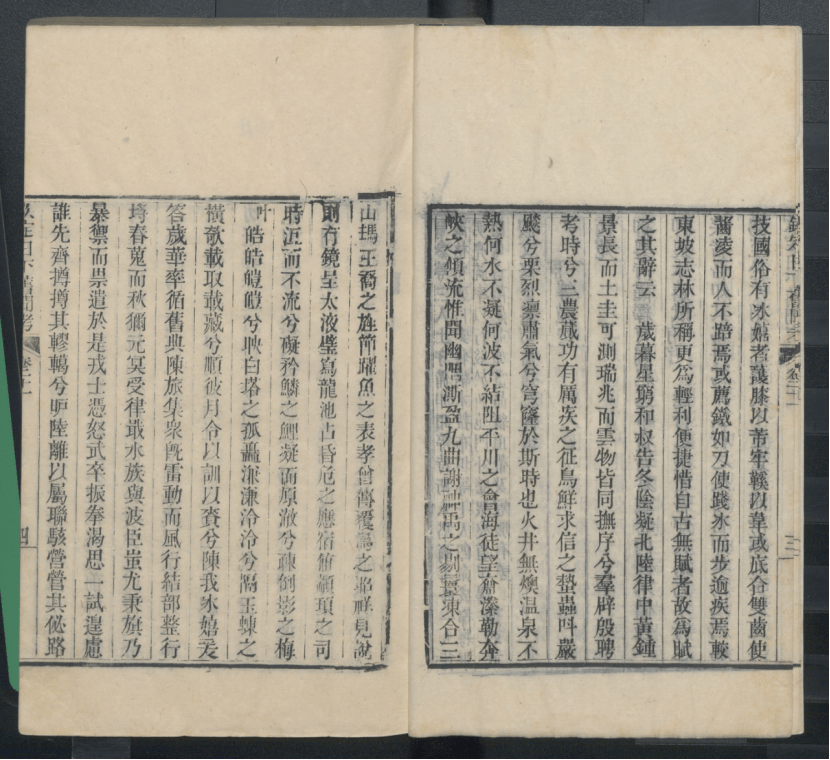 技國俗有冰嬉者護膝以芾牢鞵以韋或底含雙齒使
齧凌而人不踣焉或薦鐵如刀使踐冰而步逾疾焉較
東坡志林所稱更爲輕利便捷惜自古無賦者故爲賦
之其辭云 歲暮星窮和叔告冬陰凝北陸律中黃鍾
景長而土圭可測瑞兆而雲物皆同撫序兮羣辟殷聘
考時兮三農蕆功有厲疾之征鳥鮮求信之蟄蟲吁嚴
飈兮栗烈凛肅氣兮穹窿於斯時也火井無燠温泉不
熱何水不凝何波不結阻平川之會海徒望
峽之傾流惟聞幽澌盈九曲謝神禹之凍合三
山瑪玉喬之旌節躍魚之表孝曾傳覆之
則有鏡呈太液璧寫龍池占昏危之應宿符顓頊之司
時沍而不流兮礙矜鱗之鯉凝而原澈兮疎倒影之梅
叶 皓皓皚皚兮映白塔之孤矗溓溓泠泠兮隔玉蝀之
橫敧載取載藏兮順彼月令以訓以賚兮陳我冰嬉爰
答歲華率循舊典陳旅集衆旣雷動而風行結部整行
埓春蒐而秋獮元冥受律蕺水族與波臣蚩尤秉旗乃
暴禦而祟遣於是戎士憑怒武卒振拳渴思一試遑慮
誰先齊撙撙其轇轕兮屹陸離以屬聯駭營營其佖路
卷
四